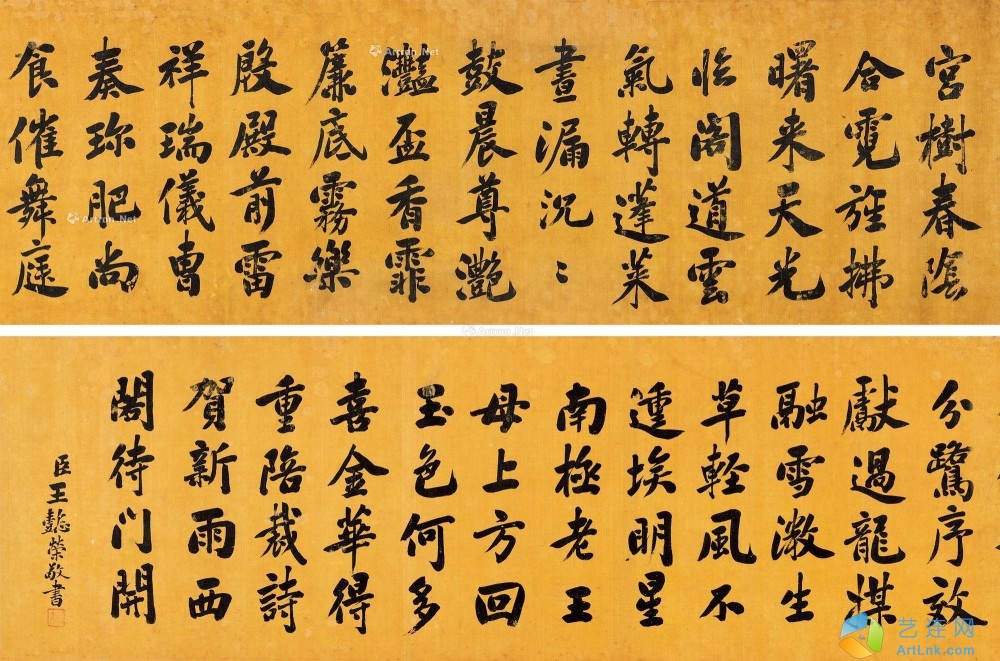 宮樹春陰
合霓旌拂
曙来天光
臨閣道雲
氣轉蓬萊
晝漏沉〻
鼓晨尊灧
灩盃香霏
簾底霧樂
殷殿前雷
祥瑞儀曹
奏珍肥尚
食催舞庭
分鷺序效
獻過龍媒
融雪生
草輕風不
埃明星
南極老王
母上方回
玉色何多
喜金華得
重陪裁詩
賀新雨西
閣待门開
臣王懿榮敬書
Artron.Net
Artron.Net
Artron.Net
艺连网
ArtLnk.com